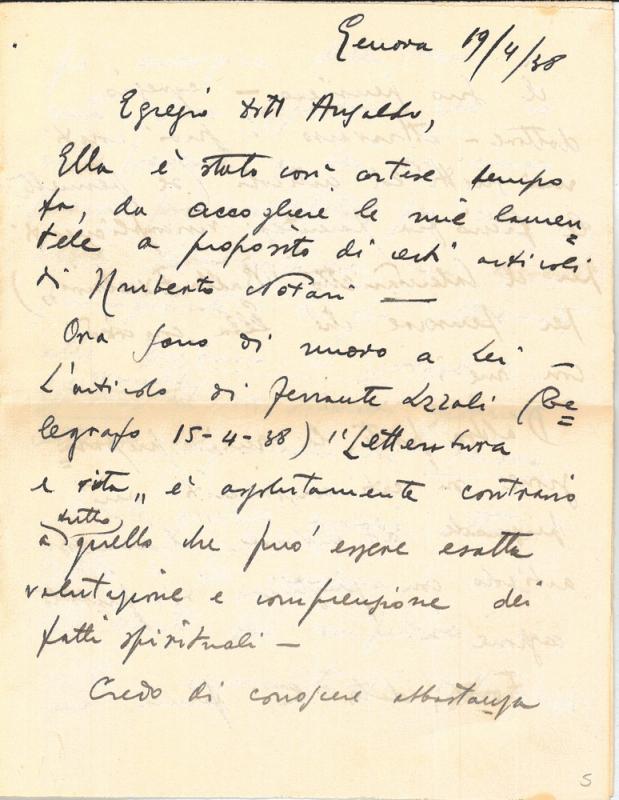 Genova 19/4/38
Egregio Dott Ansaldo,
Ella è stato così cortese tempo
fa, da accogliere le mie lamen=
tele a proposito di certi articoli
di Umberto Notari —
Ora sono di nuovo a Lei —
L'articolo di Ferrante Azzali (Te=
legrafo 15-4-38) "Letteratura
e vita" è assolutamente contrario
a tutto quello che può essere esatta
valutazione e comprensione dei
fatti spirituali —
Credo di conoscere abbastanza
S